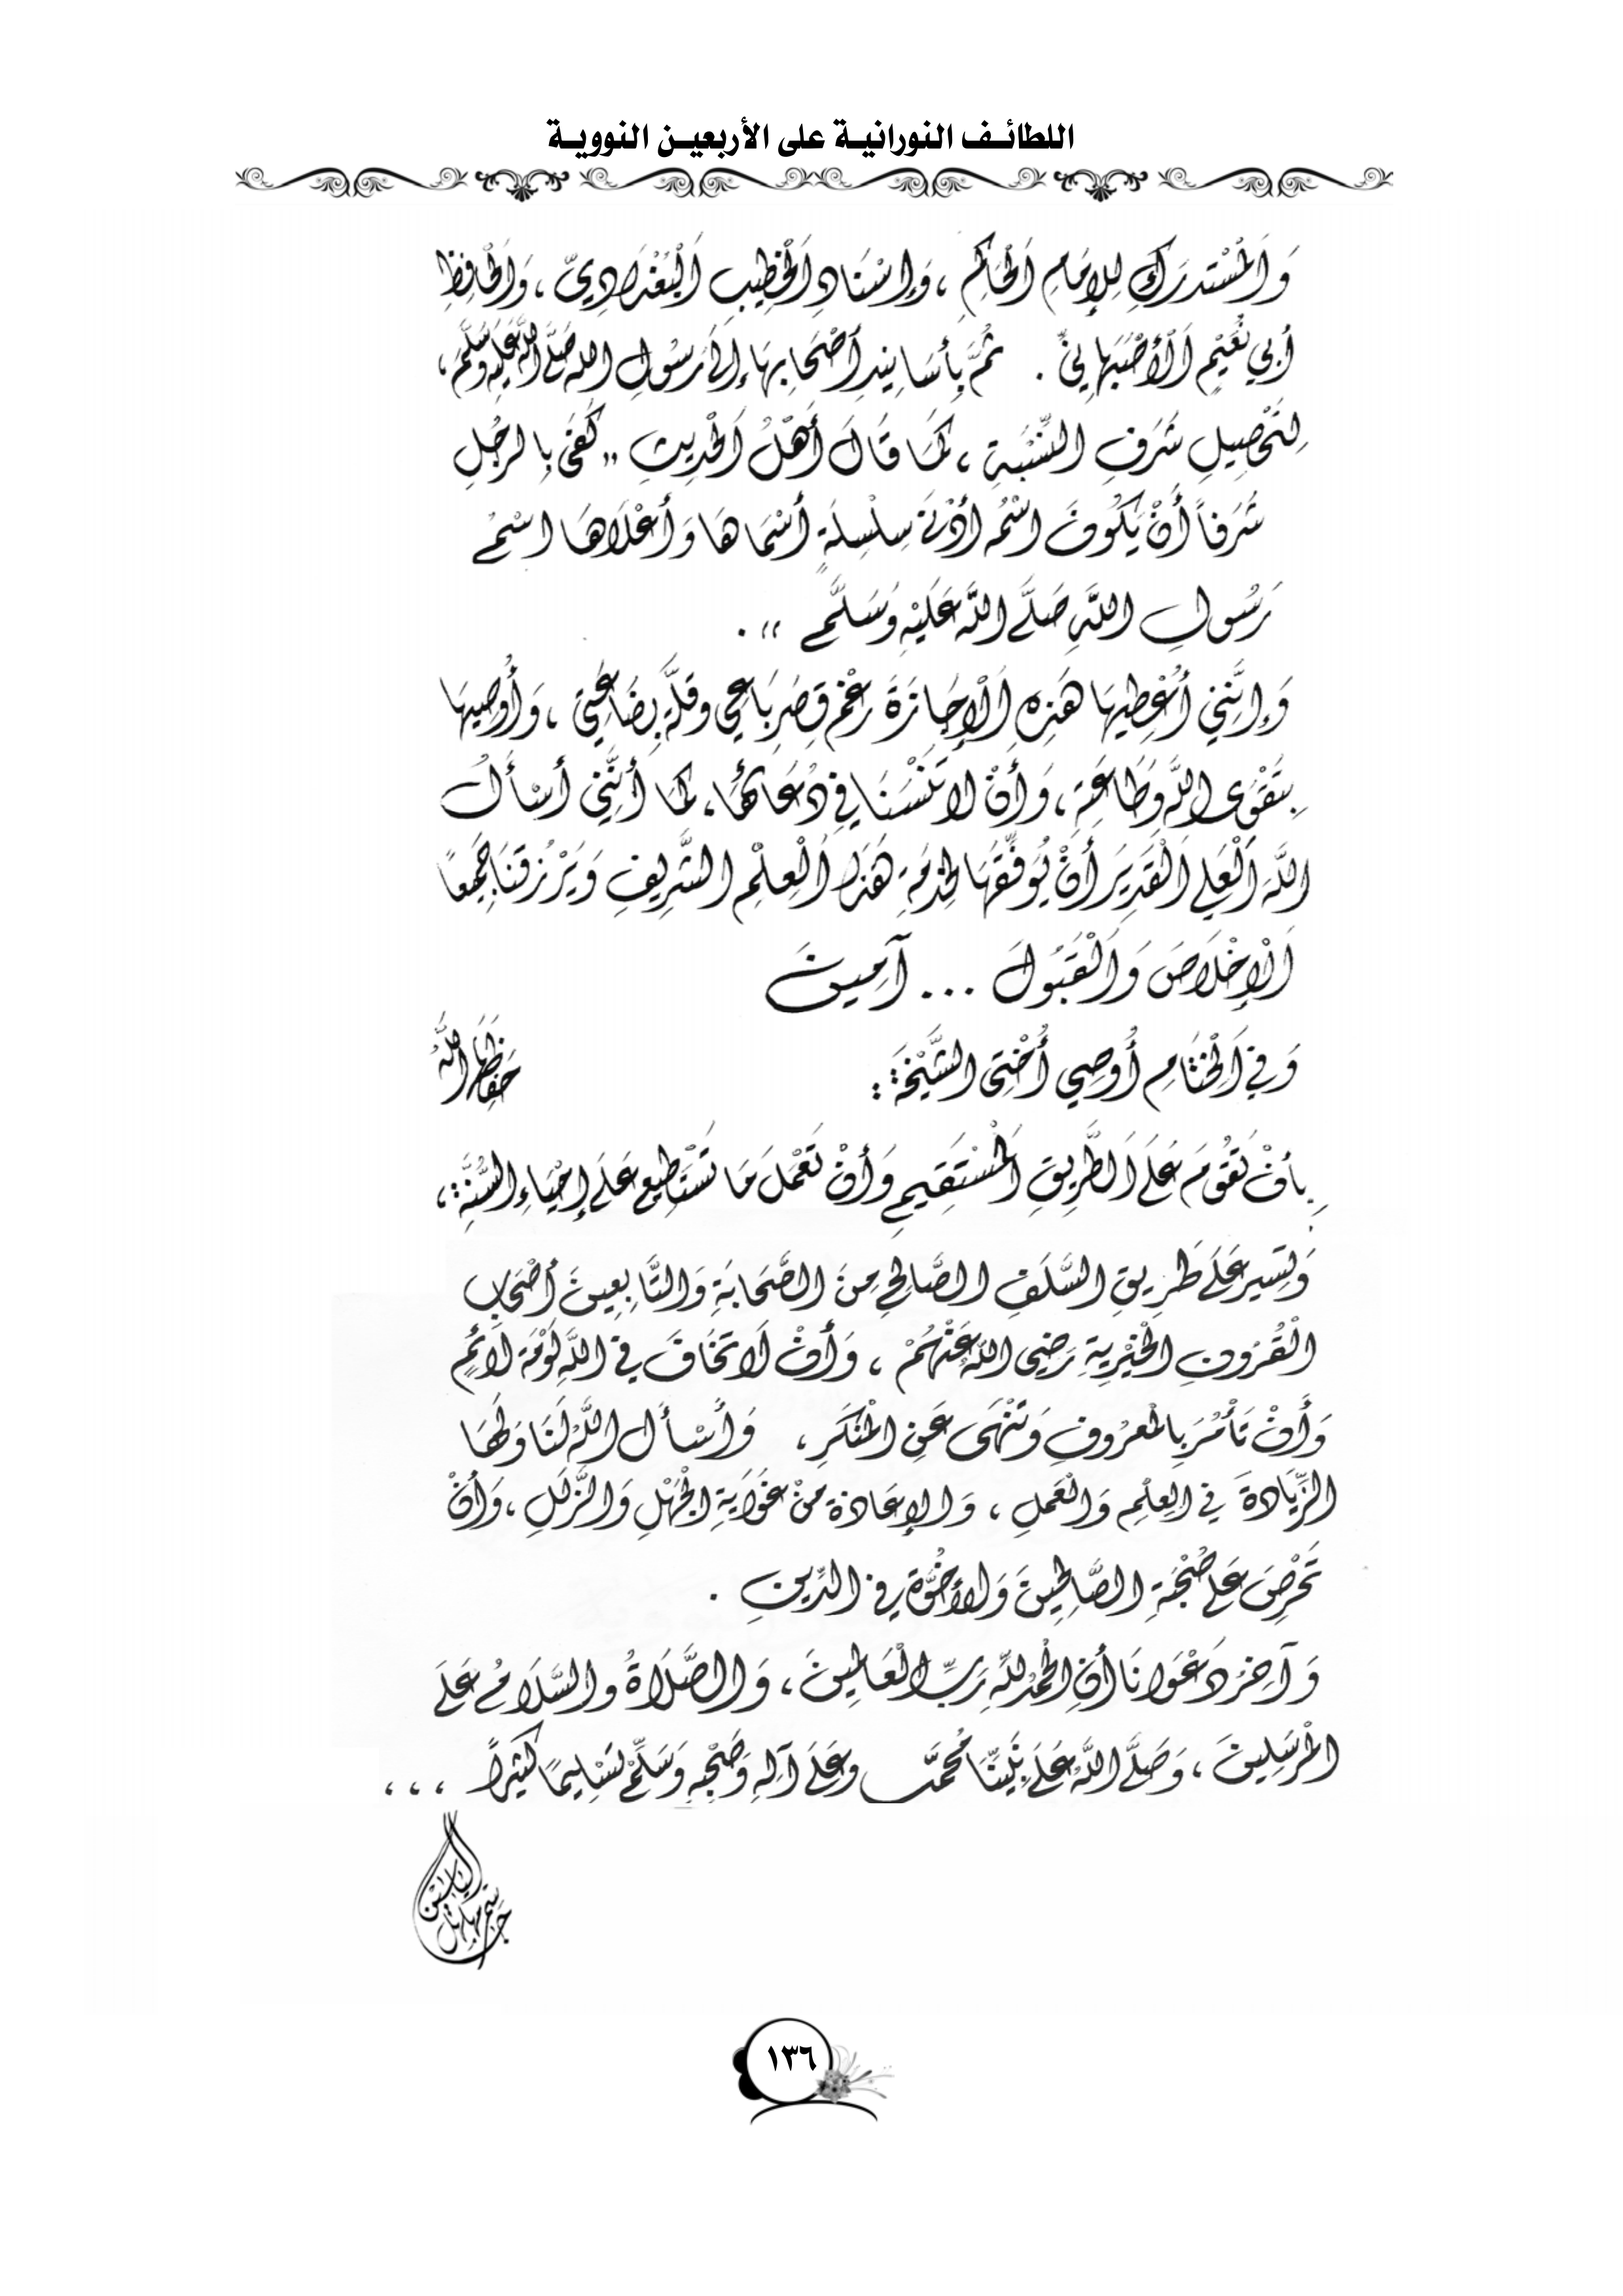 اللطائف النورانية على الأربعين النووية
وَالْمُسْتَدرَكِ لِلإِمَامِ الْحَاكِمِ ، وَإِسْنَادِ الْخَطِيبِ الْبَغْدَادِيِّ ، وَالْحَافِظِ
أَبِي نُعَيْمٍ الْأَصْبَهَانِيِّ . ثُمَّ بِأَسَانِيدِ أَصْحَابِهَا إِلَى رَسُولِ اللهِ صَلَّى اللهُ عَلَيْهِ وَسَلَّمَ ،
لِتَحْصِيلِ شَرَفِ النِّسْبَةِ ، كَمَا قَالَ أَهْلُ الْحَدِيثِ " كَفَى بِالرَّجُلِ
شَرَفاً أَنْ يَكُونَ اسْمُهُ أَدْنَى سِلْسِلَةٍ أَسْمَاهَا وَأَعْلَاهَا اسْمُ
رَسُولِ اللَّهِ صَلَّى اللَّهُ عَلَيْهِ وَسَلَّمَ " .
وَإِنَّنِي أُعْطِيهَا هَذِهِ الْإِجَازَةَ رَغْمَ قِصَرِ بَاعِي وَقِلَّةِ بِضَاعَتِي ، وَأُوصِيهَا
بِتَقْوَى اللَّهِ وَطَاعَتِهِ ، وَأَنْ لَا تَنْسَنَا فِي دُعَائِهَا ، كَمَا أَنَّنِي أَسْأَلُ
اللَّهَ الْعَلِي الْقَدِيرَ أَنْ يُوَفِّقَهَا لِخِدْمَةِ هَذَا الْعِلْمِ الشَّرِيفِ وَيَرْزُقَنَا جَمِيعًا
الْإِخْلَاصَ وَالْقَبُولَ ... آمِينَ
وَفِي الْخِتَامِ أُوصِي أُخْتِي الشَّيْخَةَ : حَفِظَهَا اللَّهُ
بِأَنْ تَقُومَ عَلَى الطَّرِيقِ الْمُسْتَقِيمِ وَأَنْ تَعْمَلَ مَا تَسْتَطِيع عَلَى إِحْيَاءِ السُّنَّةِ ،
وَتَسِير عَلَى طَرِيقِ السَّلَفِ الصَّالِحِ مِنَ الصَّحَابَةِ وَالتَّابِعِينَ أَصْحَابِ
الْقُرُونِ الْخَيْرِيةِ رَضِيَ اللَّهُ عَنْهُمْ ، وَأَنْ لَا تَخَافَ فِي اللَّهِ لَوْمَةَ لَائِمٍ
وَأَنْ تَأْمُرَ بِالْمَعْرُوفِ وَتَنْهَى عَنِ الْمُنْكَرِ ، وَأَسْأَلُ اللَّهَ لَنَا وَلَهَا
الزِّيَادَةَ فِي الْعِلْمِ وَالْعَمَلِ ، وَالإِعَاذَة مِنْ غَوَايَةِ الْجَهْلِ وَالزَّلَلِ ، وَأَنْ
تَحْرِصَ عَلَى صُحْبَةِ الصَّالِحِينَ وَالأُخُوَّةِ فِي الدِّينِ .
وَآخِرُ دَعْوَانَا أَنِ الْحَمْدُ لِلَّهِ رَبِّ الْعَالَمِينَ ، وَالصَّلَاةُ وَالسَّلَامُ عَلَى
الْمُرْسَلِينَ ، وَصَلَّى اللَّهُ عَلَى نَبِيِّنَا مُحَمَّد وَعَلَى آلِهِ وَصَحْبِهِ وَسَلِّمْ تَسْلِيمًا كَثِيرًا ،،،
١٣٦